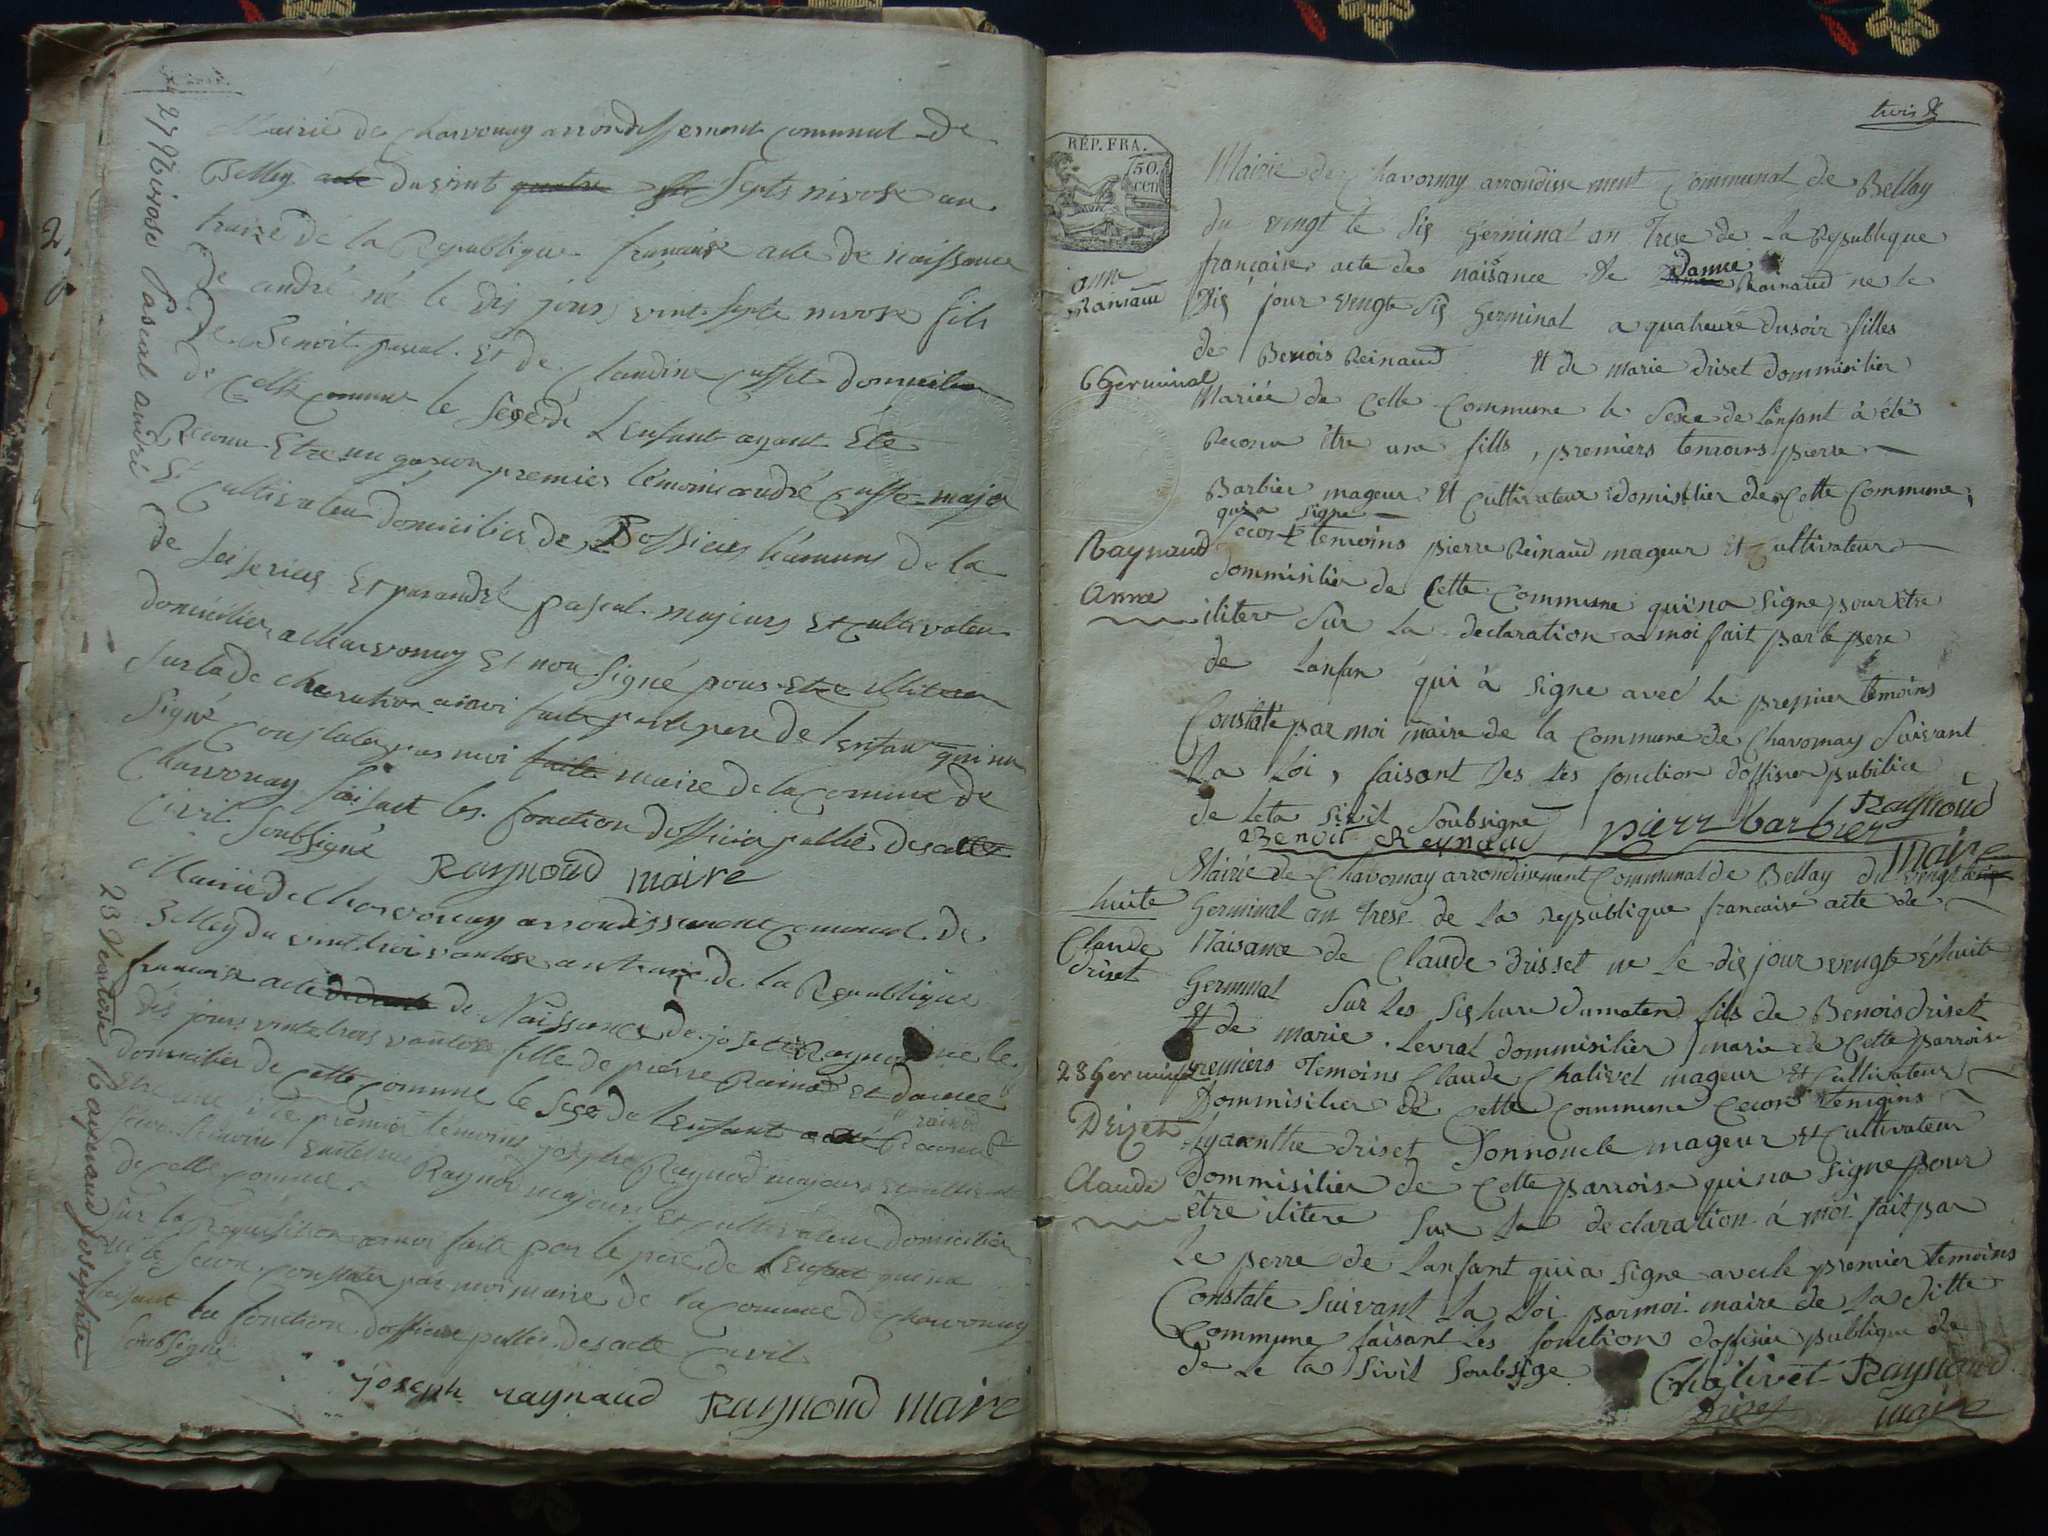 27 Nivose Pascal andré
Mairie de Charvonay arrondissement communal de
Belley acte du vint quatre septs nivose an
traise de la Republique française acte de naissance
de andré né le dis jour vint septe nivose fils
de Benoit pascal Et de Claudine Cusset domicilier
de Cette comune le sexe de L'enfant ayant Ete
Reconu Etre un garcon premier temoin andré Cusse major
Et Cultivateur domicilier de
de Et par andré pascal majeurs Et cultivateur
domicilier a Charvonay Et non signé pour Etre illitere
sur la de claration a moi faite par le pere de l'enfant qui na
signé constater par moi faite maire de la comune de
Charvonay faisant les fonction d'officier public des acte
Civil soubsigné
Raynoud maire
23 Ventose Raynaud Josephte
Mairie de Charvonay arrondissement comunal de
Belley du vint trois vantose an traise de la Republique
francaise acte de Naissance de josette Raynod née le
dis jour vintetrois vantose fille de pierre Rainod Et danne
rainod
domicilier de cette comune le sexe de l'enfant a été Reconu
Etre une premier temoins joseph Raynod majeur Et cultivateur
Raynod majeur Et cultivateur domicilier
de cette comune
sur la requisition a moi faite par le pere de l'enfant qui na
constater par moi maire de la comune de charvonay
faisant les fonction d'officier public des acte civil
soubsigné
joseph raynaud Raynoud maire
trois
RÉP. FRA.
50 cen
Mairie de Chavornay arrondissement Communal de Bellay
du vengt te sis Germinal an Trese de La Republique
françaire acte de naisance de danne Rainaud ne le
Dis jour vengte sis Germinal a quaheure du soir filles
de Benois Reinaud Et de Marie driset dommisilier
Mariée de Cette Commune le Sexe de L'anfant à été
Reconu être una fills, premiers temoins pierre
Barbier mageur Et Cultivateur domisilier de Cette Commune,
qui a signe
Secont temoins pierre Reinaud mageur Et Cultivateur
dommisilier de Cette Commune qui na signe pour être
ilitere Sur La declaration a moi fait par le pere
de Lanfan qui à signe avec le premier temoins
Constaté par moi maire de la Commune de Chavornay Suivant
La Loi, faisant Les Les fonction doffisier publice
de Leta Sivil Soubsigne
ann
Rainaud
6 Germinal
Raynaud
Anne
Benoit Reynaud pierr barbier Raynoud
maire
Mairie de Chavornay arrondissement Communal de Bellay du vengt
huite Germinal an Trese de La Republique francaise acte de
Naisance de Claude drisset ne le dis jour vengte éhuite
Germinal Sur les sis hure du maten fils de Benois driset
Et de marie Levrat dommisilier marie de Cette parroise
premiers Temoins Claude Chalivet mageur Et Cultivateur
Dommisilier de Cette Commune Cecont temoins
Hyacinthe driset Donnoncle mageur Et Cultivateur
dommisilier de Cette parroise qui na signe pour
être ilitere Sur La declaration à moi fait par
Le perre de Lanfant qui a signe avec le premier temoins
Constate Suivant La Loi par moi maire de La ditte
Commune faisant les fonction doffisier publique de
de Le ta Sivil Soubsige
Claude
driset
28 Germinal
Drizet
Claude
Chalivet Raynoud
Driset maire